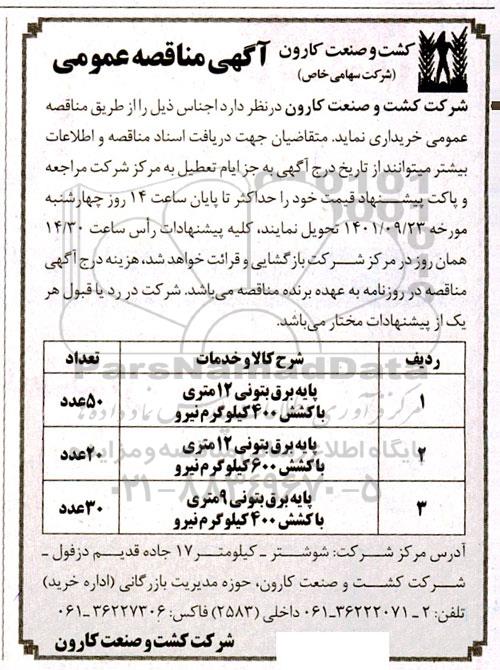 کشت و صنعت کارون
(شرکت سهامی خاص)
آگهی مناقصه عمومی
شرکت کشت و صنعت کارون در نظر دارد اجناس ذیل را از طریق مناقصه
عمومی خریداری نماید. متقاضیان جهت دریافت اسناد مناقصه و اطلاعات
بیشتر میتوانند از تاریخ درج آگهی به جز ایام تعطیل به مرکز شرکت مراجعه
و پاکت پیشنهاد قیمت خود را حداکثر تا پایان ساعت ۱۴ روز چهارشنبه
مورخه ۱۴۰۱/۰۹/۲۳ تحویل نمایند، کلیه پیشنهادات رأس ساعت ۱۴/۳۰
همان روز در مرکز شرکت بازگشایی و قرائت خواهد شد، هزینه درج آگهی
مناقصه در روزنامه به عهده برنده مناقصه می‌باشد. شرکت در رد یا قبول هر
یک از پیشنهادات مختار می‌باشد.
ردیف شرح کالا و خدمات تعداد
۱ پایه برق بتونی ۱۲ متری با کشش ۴۰۰ کیلوگرم نیرو ۵۰ عدد
۲ پایه برق بتونی ۱۲ متری با کشش ۶۰۰ کیلوگرم نیرو ۲۰ عدد
۳ پایه برق بتونی ۹ متری با کشش ۴۰۰ کیلوگرم نیرو ۳۰ عدد
آدرس مرکز شرکت: شوشتر ـ کیلومتر ۱۷ جاده قدیم دزفول ـ
شرکت کشت و صنعت کارون، حوزه مدیریت بازرگانی (اداره خرید)
تلفن: ۲ ـ ۳۶۲۲۲۰۷۱-۰۶۱ داخلی (۲۵۸۳) فاکس: ۳۶۲۲۷۳۰۶ -۰۶۱
شرکت کشت و صنعت کارون
ParsNamadData
۰۲۱-۸۸۳۴۹۶۷۰-۵